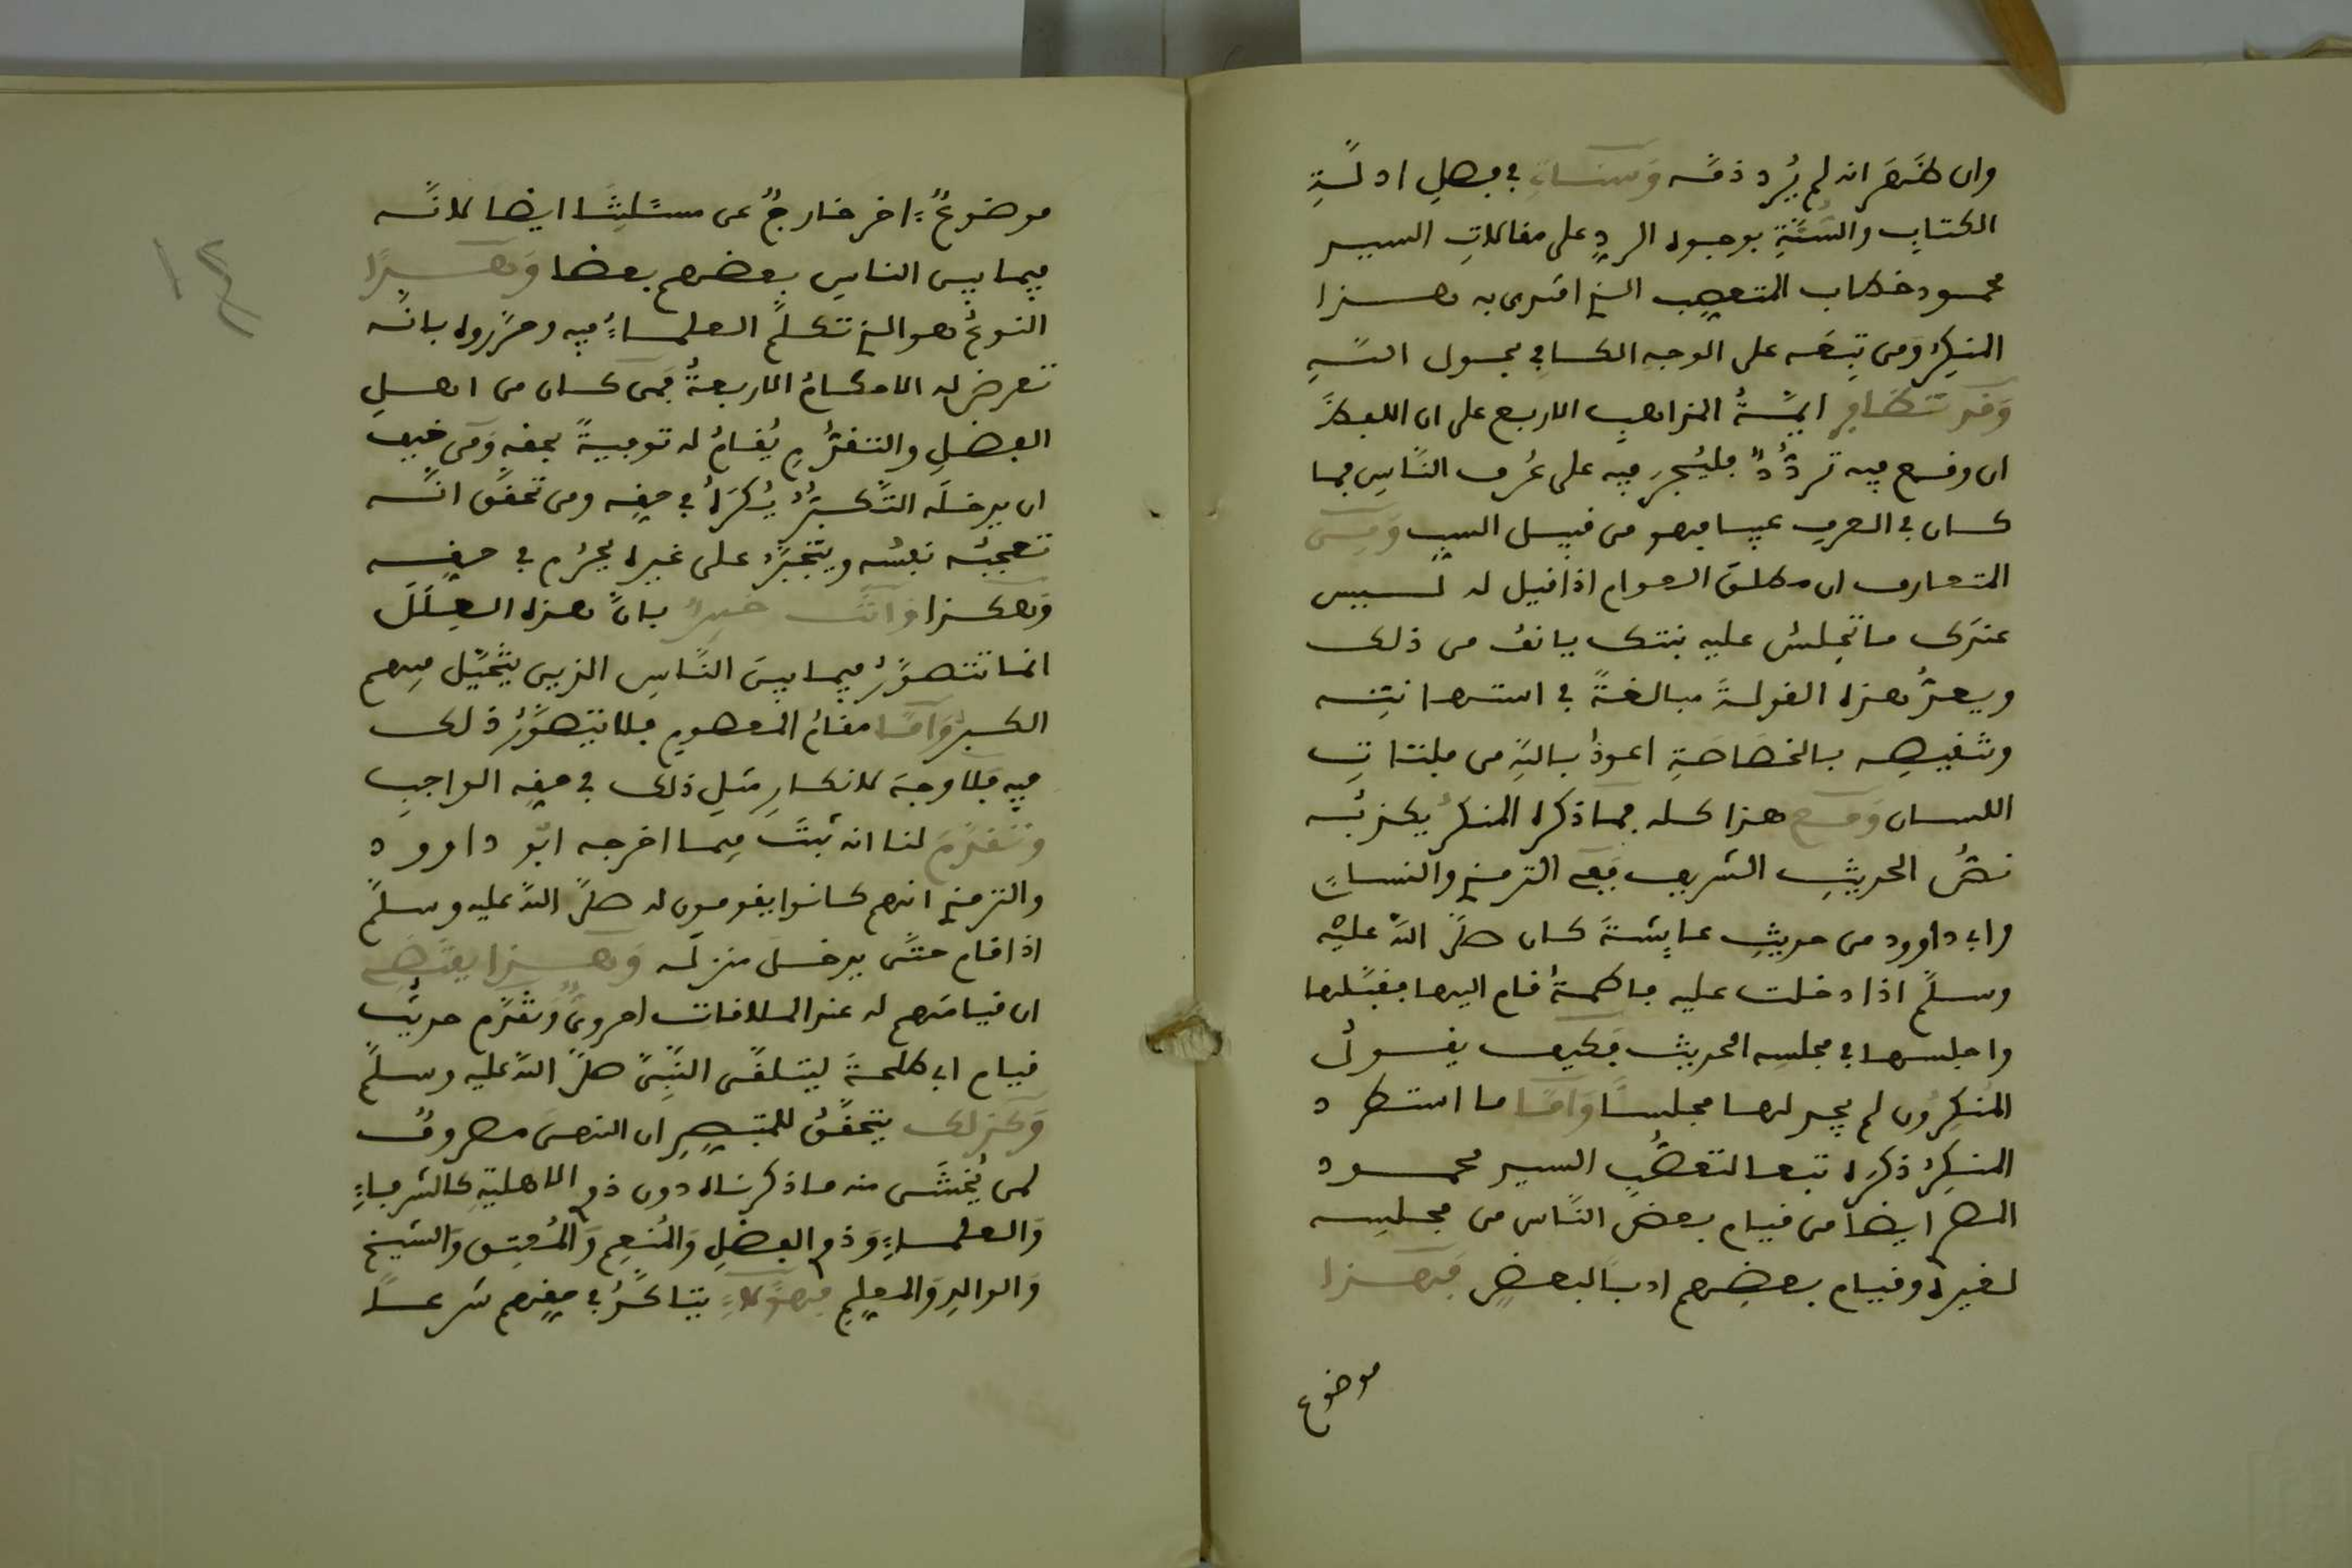 وان ظهر انه لم يُرد ذمَّه وسنأتِ في فصل ادلّةِ
الكتابِ والسُّنَّةِ بوجوه الردِّ على مقالاتِ السيد
محمود خطاب المتعصِّب الذي اقتدى به هذا
المنكِرُ ومن تبِعَه على الوجهِ الكافي بحول اللهِ
وقد تظافر ايمَّةُ المذاهبِ الاربع على ان اللفظَ
ان وقع فيه تردُّدٌ فليُجرَ فيه على عُرف النَّاسِ فما
كان في العرف عيبا فهو من قبيل السبِّ ومِن
المتعارف ان مطلقَ العوام اذا قيل له ليس
عندَك ما تجلسُ عليه بنتك يانف من ذلك
ويعدُّ هذه القولةَ مبالغةً في استهانتِه
وتنقيصِه بالخصاصةِ اعوذُ باللهِ من فلتاتِ
اللسان ومع هذا كله فما ذكره المنكرُ يكذبُه
نصُّ الحديثِ الشريف ففي الترمذي والنسائ
وابي داوود من حديثِ عايشةَ كان صلَّى اللهُ عليْه
وسلَّم اذا دخلت عليه فاطمةُ قام اليها فقبَّلها
واجلسها في مجلسِه الحديث فكيف يقولُ
المُنكِرُون لم يجد لها مجلساً وأمَّا ما استطرد
المنكِرُ ذكره تبعا لتعصُّبِ السيد محمود
المصري ايضاً من قيام بعض النَّاس من مجلسِه
لغيره وقيام بعضِهم ادباً لبعضٍ فهذا
موضوع
موضوعٌ ءاخر خارجٌ عن مسئلتِنا ايضا لانَّه
فيما بين الناسِ بعضهم بعضا وهذا
النوعُ هو الذي تكلَّم العلماءُ فيه وحرَّروه بانَّه
تعرض له الاحكامُ الاربعةُ فمن كان من اهلِ
الفضلِ والتقدُّمِ يُقامُ له توفيةً بحقه ومن خيف
ان يدخلَه التَّكبُّرُ يُكرَهُ في حقِّه ومن تحقَّق انَّه
تعجبُه نفسُه ويتجبَّرُ على غيره يحرُم في حقِّه
وهكذا وانت خبيرٌ بانَّ هذه العِلَلَ
انما تتصوَّرُ فيما بينَ النَّاسِ الذين يتخيَّل منهم
الكبرُ وأمَّا مقامُ المعصومِ فلا يتصوَّرُ ذلك
فيه فلا وجهَ لانكارِ مثلِ ذلك في حقِّه الواجبِ
وتقدَّمَ لنا انه ثبتَ فيما اخرجه ابُو داوود
والترمذي انهم كانوا يقومون له صلَّى اللهُ عليه وسلَّم
اذا قام حتَّى يدخلَ منزلَه وهذا يقتضِي
ان قيامَهم له عند الملاقات احرويٌّ وتقدَّم حديثُ
قيام ابي طلحةَ ليتلقَّى النَّبيَّ صلَّى اللهُ عليه وسلَّم
وكذلك يتحقَّقُ للمتبصِّرِ ان النهيَ مصروفٌ
لمن يُخشَى منه ما ذكرناه دون ذوي الاهليةِ كالشرفاءِ
والعلماءِ وذوي الفضلِ والمُنعِمِ والمُعتِق والشيخ
والوالدِ والمعلِّمِ فهؤلاءِ يتاكَّدُ في حقِّهم شرعاً